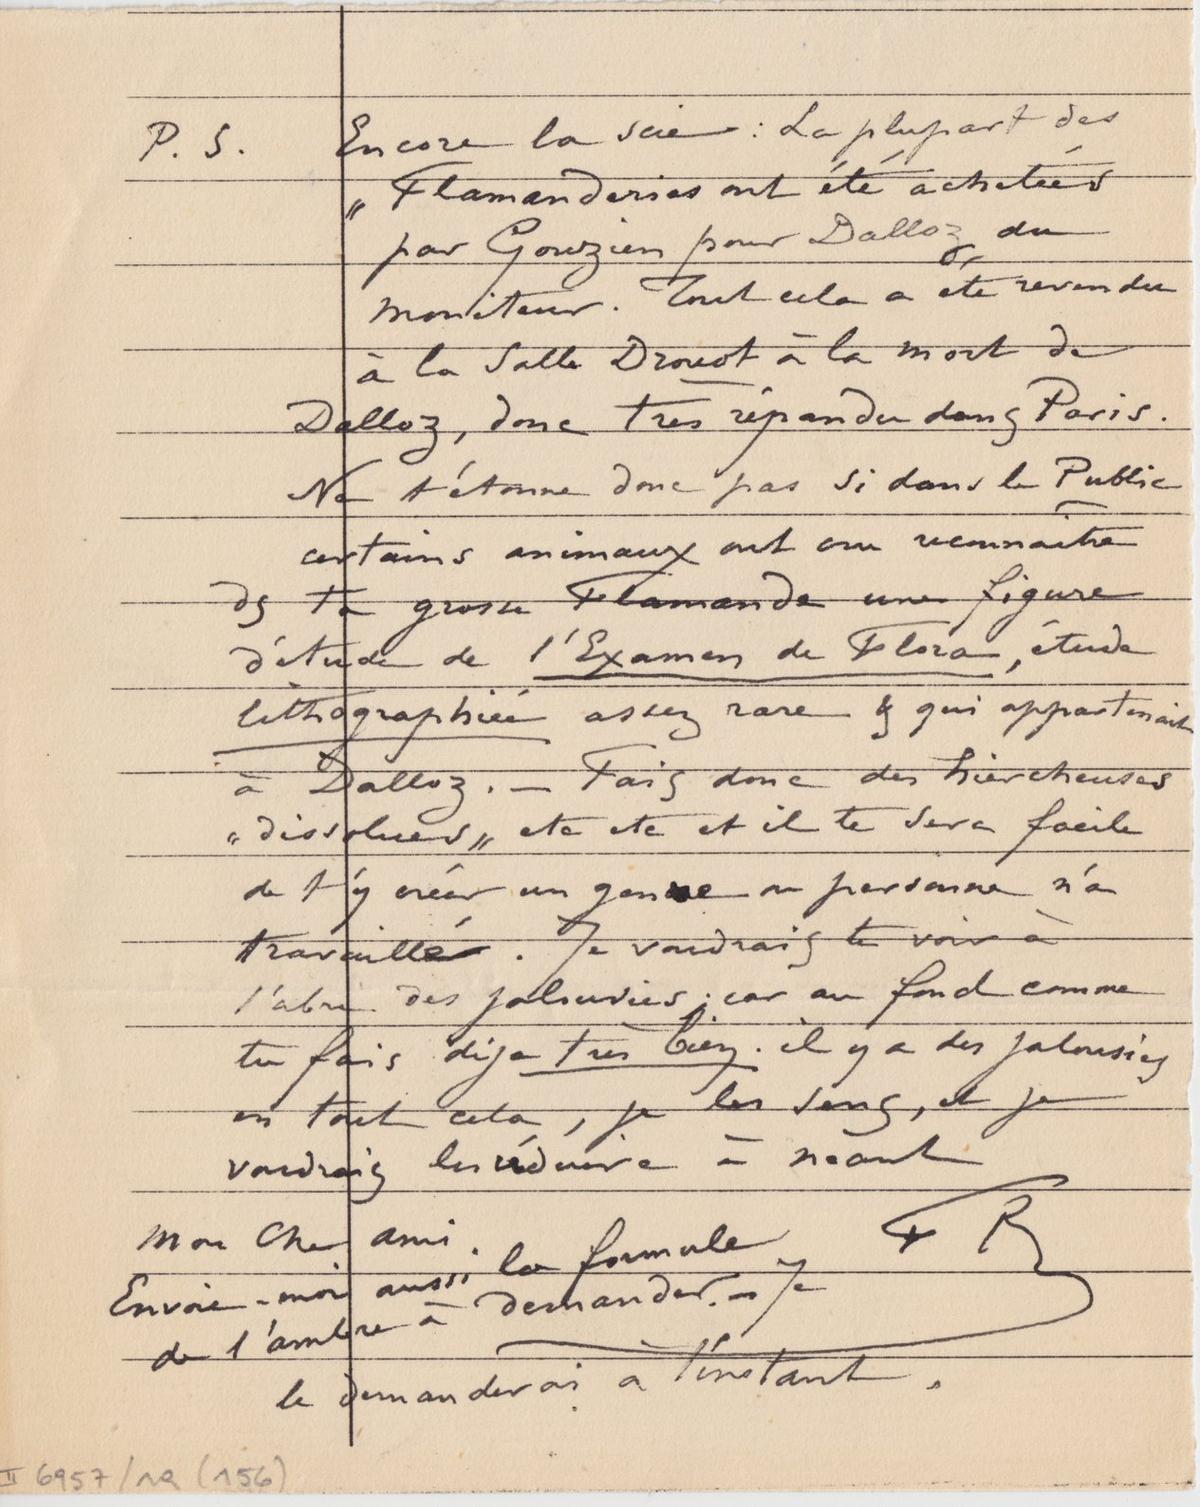 P. S. Encore la scie : La plupart des
„ Flamanderies ont été achetées
par Gouzien pour Dalloz, du
moniteur. Tout cela a été revendu
à la Salle Drouot à la mort de
Dalloz, donc très répandu dans Paris.
Ne t'étonne donc pas si dans le Public
certains animaux ont cru reconnaître
ds ta grosse Flamande une figure
d'étude de l'Examen de Flora, étude
lithographiée assez rare & qui appartenait
à Dalloz. — Fais donc des hiercheuses
„dissolues„ etc etc et il te sera facile
de t'y créer un genre ou personne n'a
travaillé. Je voudrais te voir à
l'abri des jalousies ; car au fond comme
tu fais déja très bien. il y a des jalousies
en tout cela, je les sens, et je
voudrais les réduire à néant
F R
Mon Cher ami.
Envoie-moi aussi la formule
de l'ambre à demander. — Je
le demanderai à l'instant.
II 6957/19 (156)